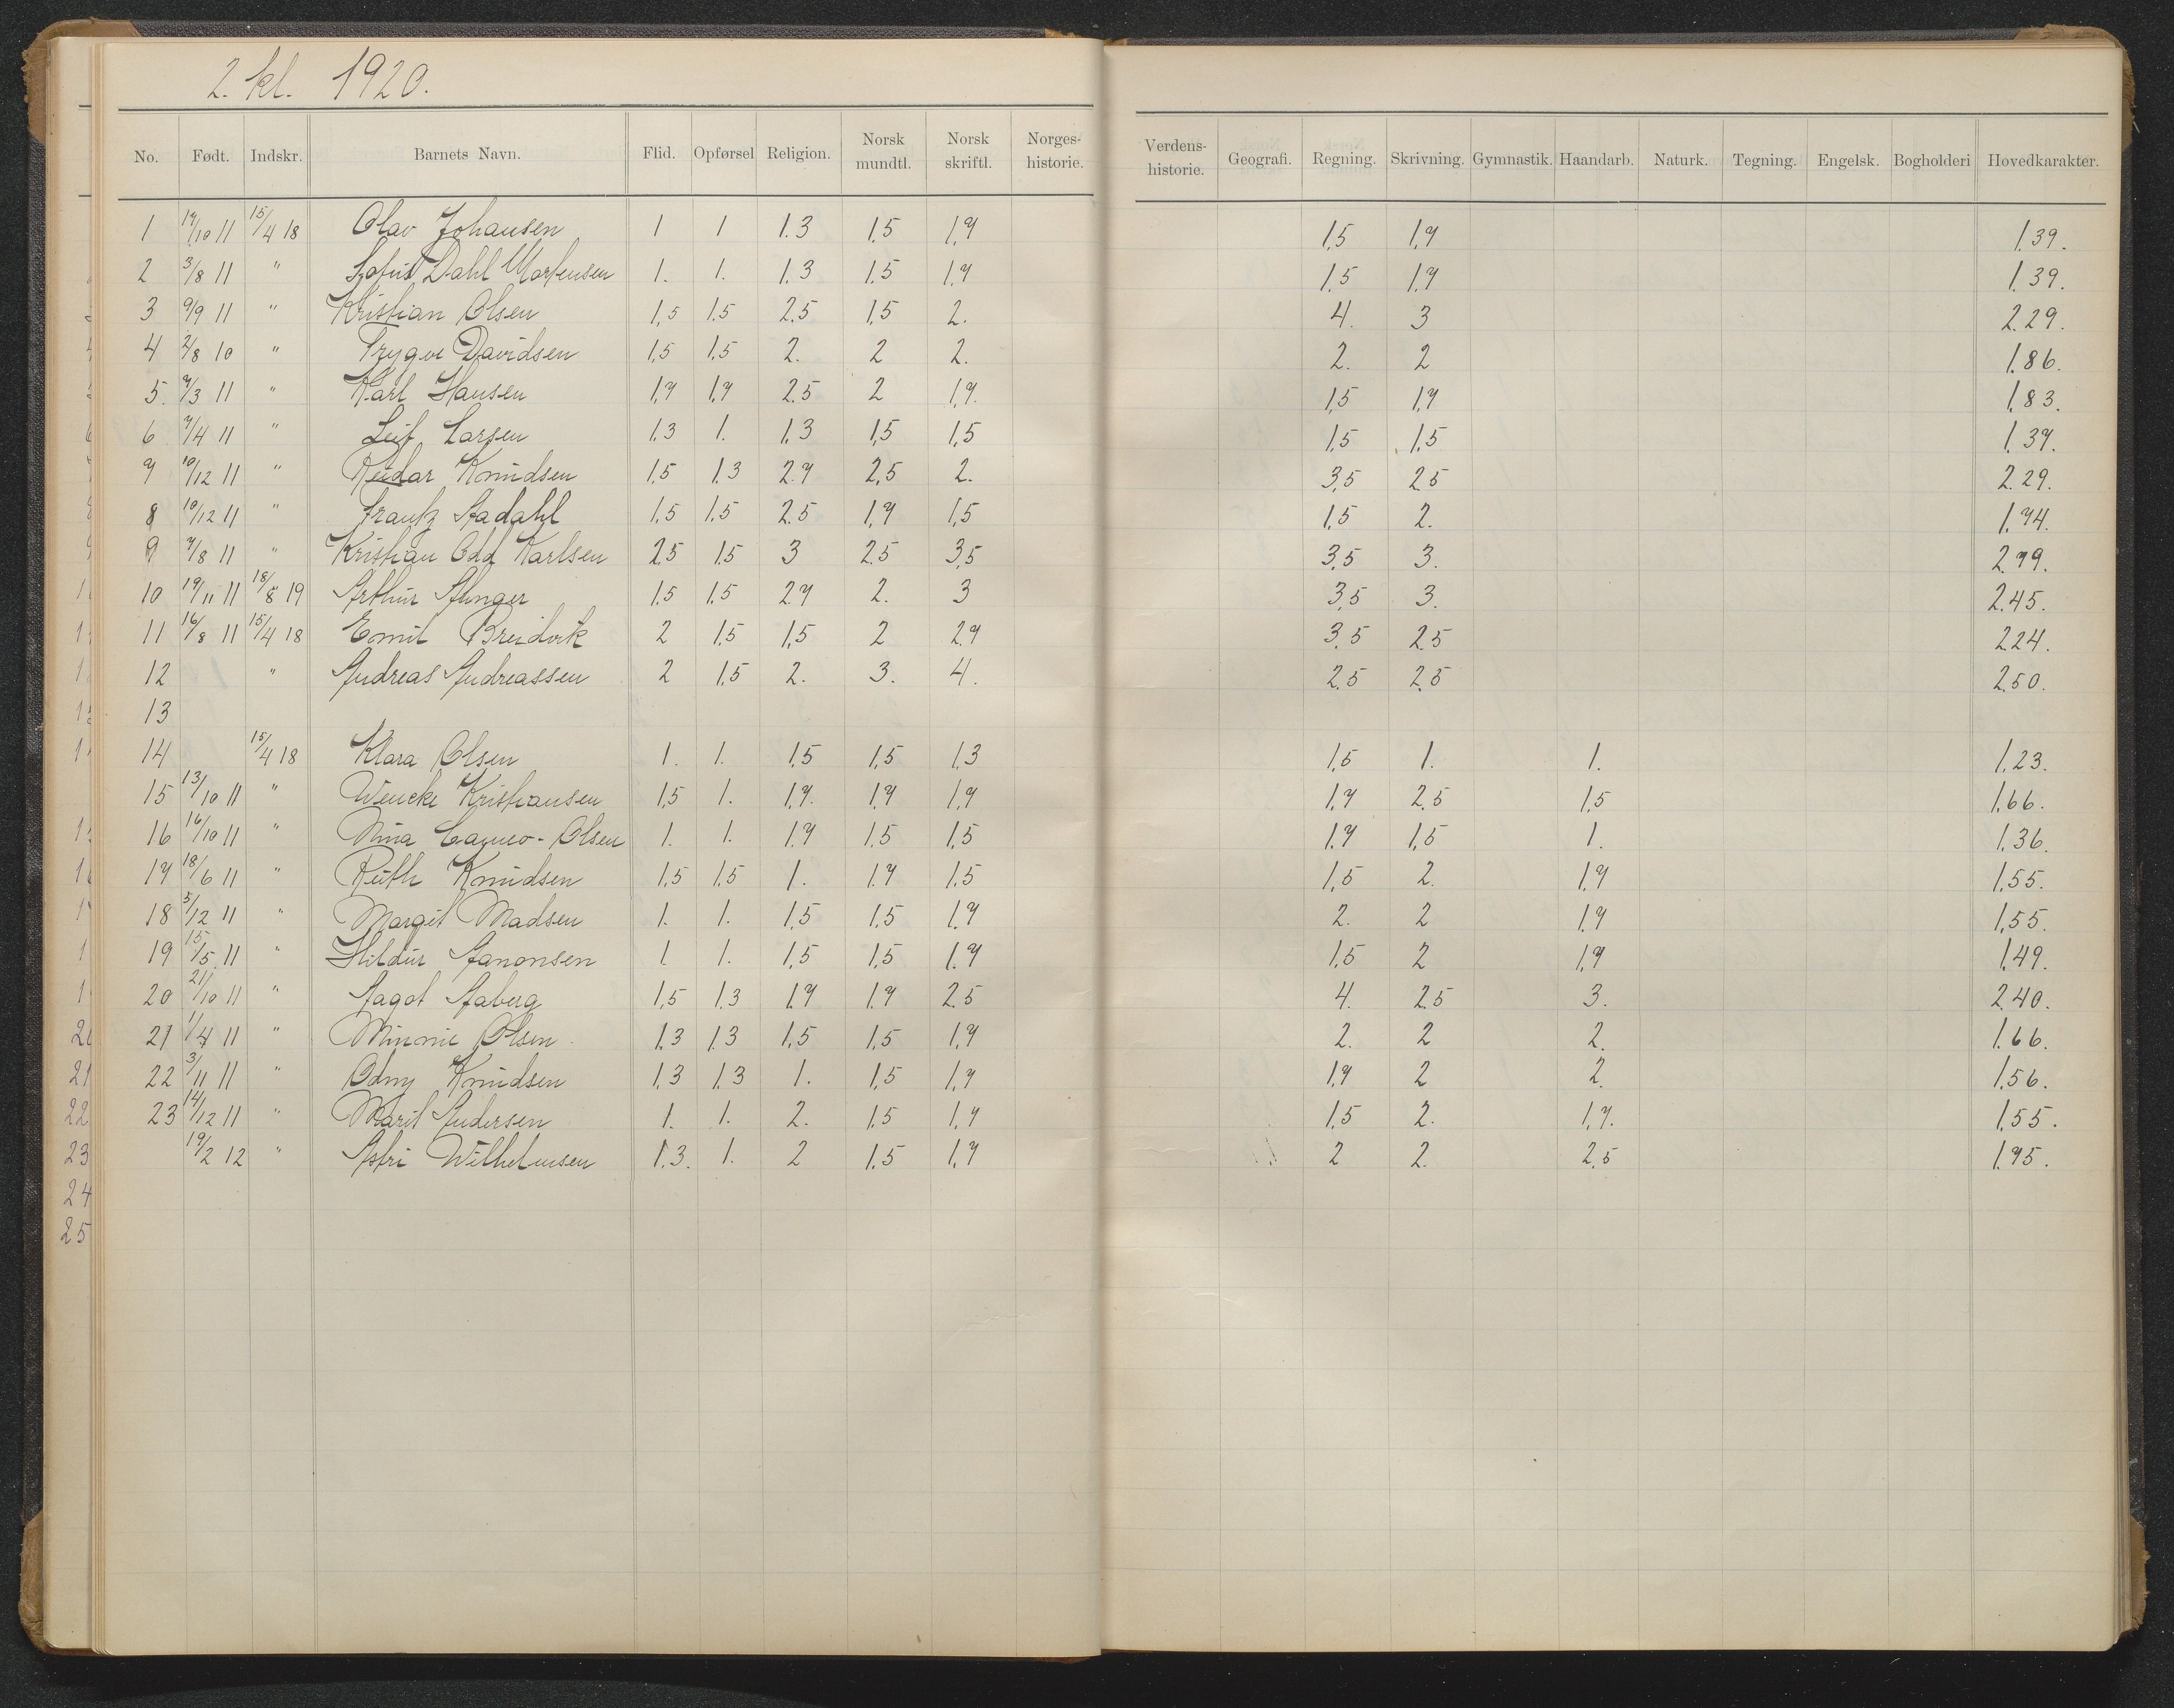 2. kl. 1920.
No. Født. Indskr. Barnets Navn. Flid. Opførsel Religion. Norsk mundtl. Norsk skriftl. Norges-historie. Verdens-historie. Geografi. Regning. Skrivning. Gymnastik. Haandarb. Naturk. Tegning. Engelsk. Bogholderi Hovedkarakter.
1 17/10 11 15/4 18 Olav Johansen 1 1 1.3 1.5 1,7 1,5 1,7 1.39.
2 3/8 11 " Sofus Dahl Mortensen 1. 1. 1.3 1.5 1,7 1,5 1,7 1.39.
3 9/9 11 " Kristian Olsen 1,5 1.5 2.5 1,5 2. 4. 3 2.29.
4 2/8 10 " Trygve Davidsen 1,5 1,5 2. 2 2. 2. 2 1.86.
5. 7/3 11 " Karl Hansen 1,7 1,7 2.5 2 1,7. 1,5 1,7 1.83.
6 7/4 11 " Leif Larsen 1.3 1. 1.3 1,5 1,5 1,5 1,5 1.37.
7 10/12 11 " Reidar Knudsen 1,5 1.3 2.7 2,5 2. 3,5 2.5 2.29.
8 10/12 11 " Frantz Aadahl 1,5 1.5 2.5 1,7 1,5 1,5 2. 1.74.
9 7/8 11 " Kristian Odd Karlsen 2,5 1.5 3 2.5 3,5 3,5 3. 2.79.
10 19/11 11 18/8 19 Arthur Aunger 1.5 1.5 2.7 2. 3 3,5 3. 2.45.
11 16/8 11 15/4 18 Emil Breidvik 2 1.5 1,5 2 2.7 3,5 2.5 2.24.
12 " Andreas Andreassen 2 1.5 2. 3. 4. 2.5 2.5 2.50.
13
14 15/4 18 Klara Olsen 1. 1. 1.5 1,5 1.3 1,5 1. 1. 1.23.
15 13/10 11 " Wencke Kristiansen 1,5 1. 1,7. 1,7 1,7 1,7 2.5 1,5 1.66.
16 16/10 11 " Nina Cameo-Olsen 1. 1. 1.7 1.5 1,5 1.7 1,5 1. 1.36.
17 18/6 11 " Ruth Knudsen 1,5 1,5 1. 1.7 1.5 1,5 2. 1,7 1,55.
18 5/12 11 " Margit Madsen 1. 1. 1,5 1.5 1,7 2. 2 1,7 1,55.
19 15/5 11 " Hildur Aanonsen 1 1. 1,5 1,5 1.7 1,5 2 1,7 1.49.
20 21/10 11 " Aagot Aaberg 1,5 1.3 1.7 1.7 2.5 4. 2.5 3. 2.40.
21 1/4 11 " Minnie Olsen 1.3 1.3 1.5 1,5 1,7 2. 2 2. 1.66.
22 3/11 11 " Odny Knudsen 1,3 1.3 1. 1,5 1,7 1,7 2 2. 1,56.
23 14/12 11 " Marit Andersen 1. 1. 2. 1.5 1,7 1,5 2. 1,7. 1,55.
19/2 12 " Asfri Wilhelmsen 1.3. 1. 2 1.5 1,7 2 2. 2,5 1.75.
21
22
23
24
25